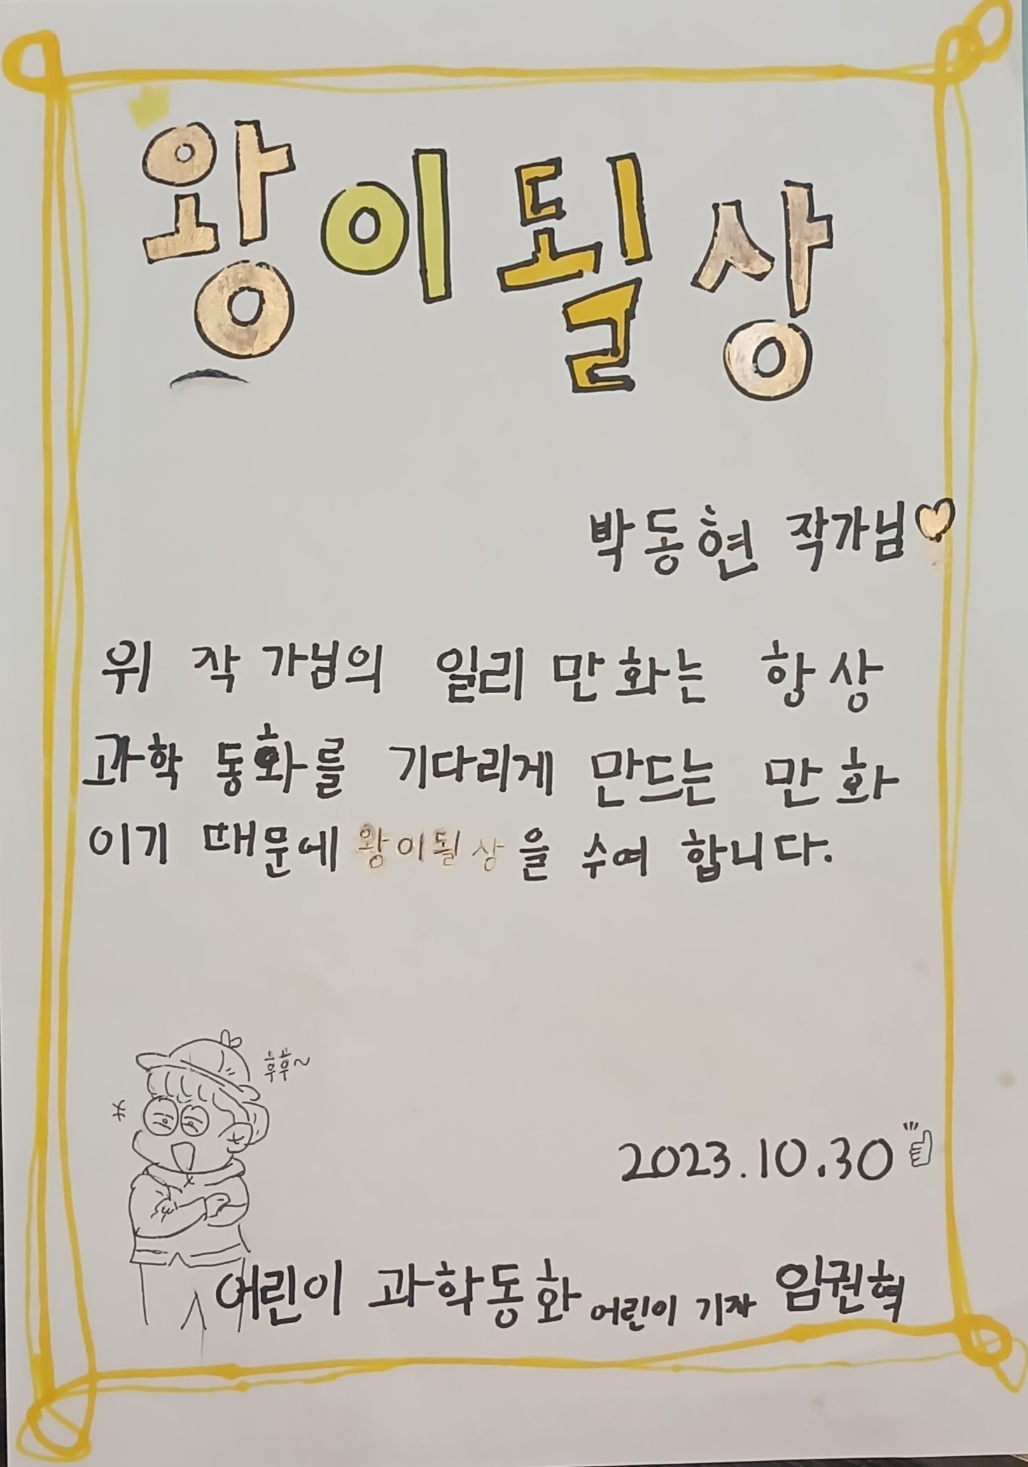 왕이될상
박동현 작가님♡
위 작가님의 일리 만화는 항상
과학 동화를 기다리게 만드는 만화
이기 때문에 왕이될상을 수여 합니다.
후후~
2023.10.30
어린이 과학동화 어린이 기자 임권혁